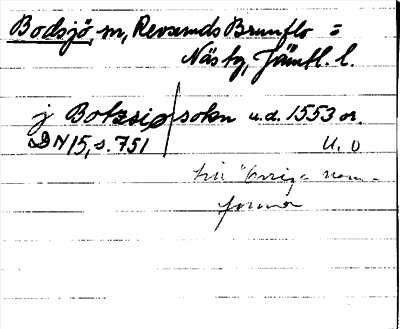 Bodsjö, m, Revsunds Brunflo =
Näs tg, Jämtl. l.
j Botzsiø sokn u.d. 1553 or.
DN 15, s. 751 U. O
till "övriga namn-
former